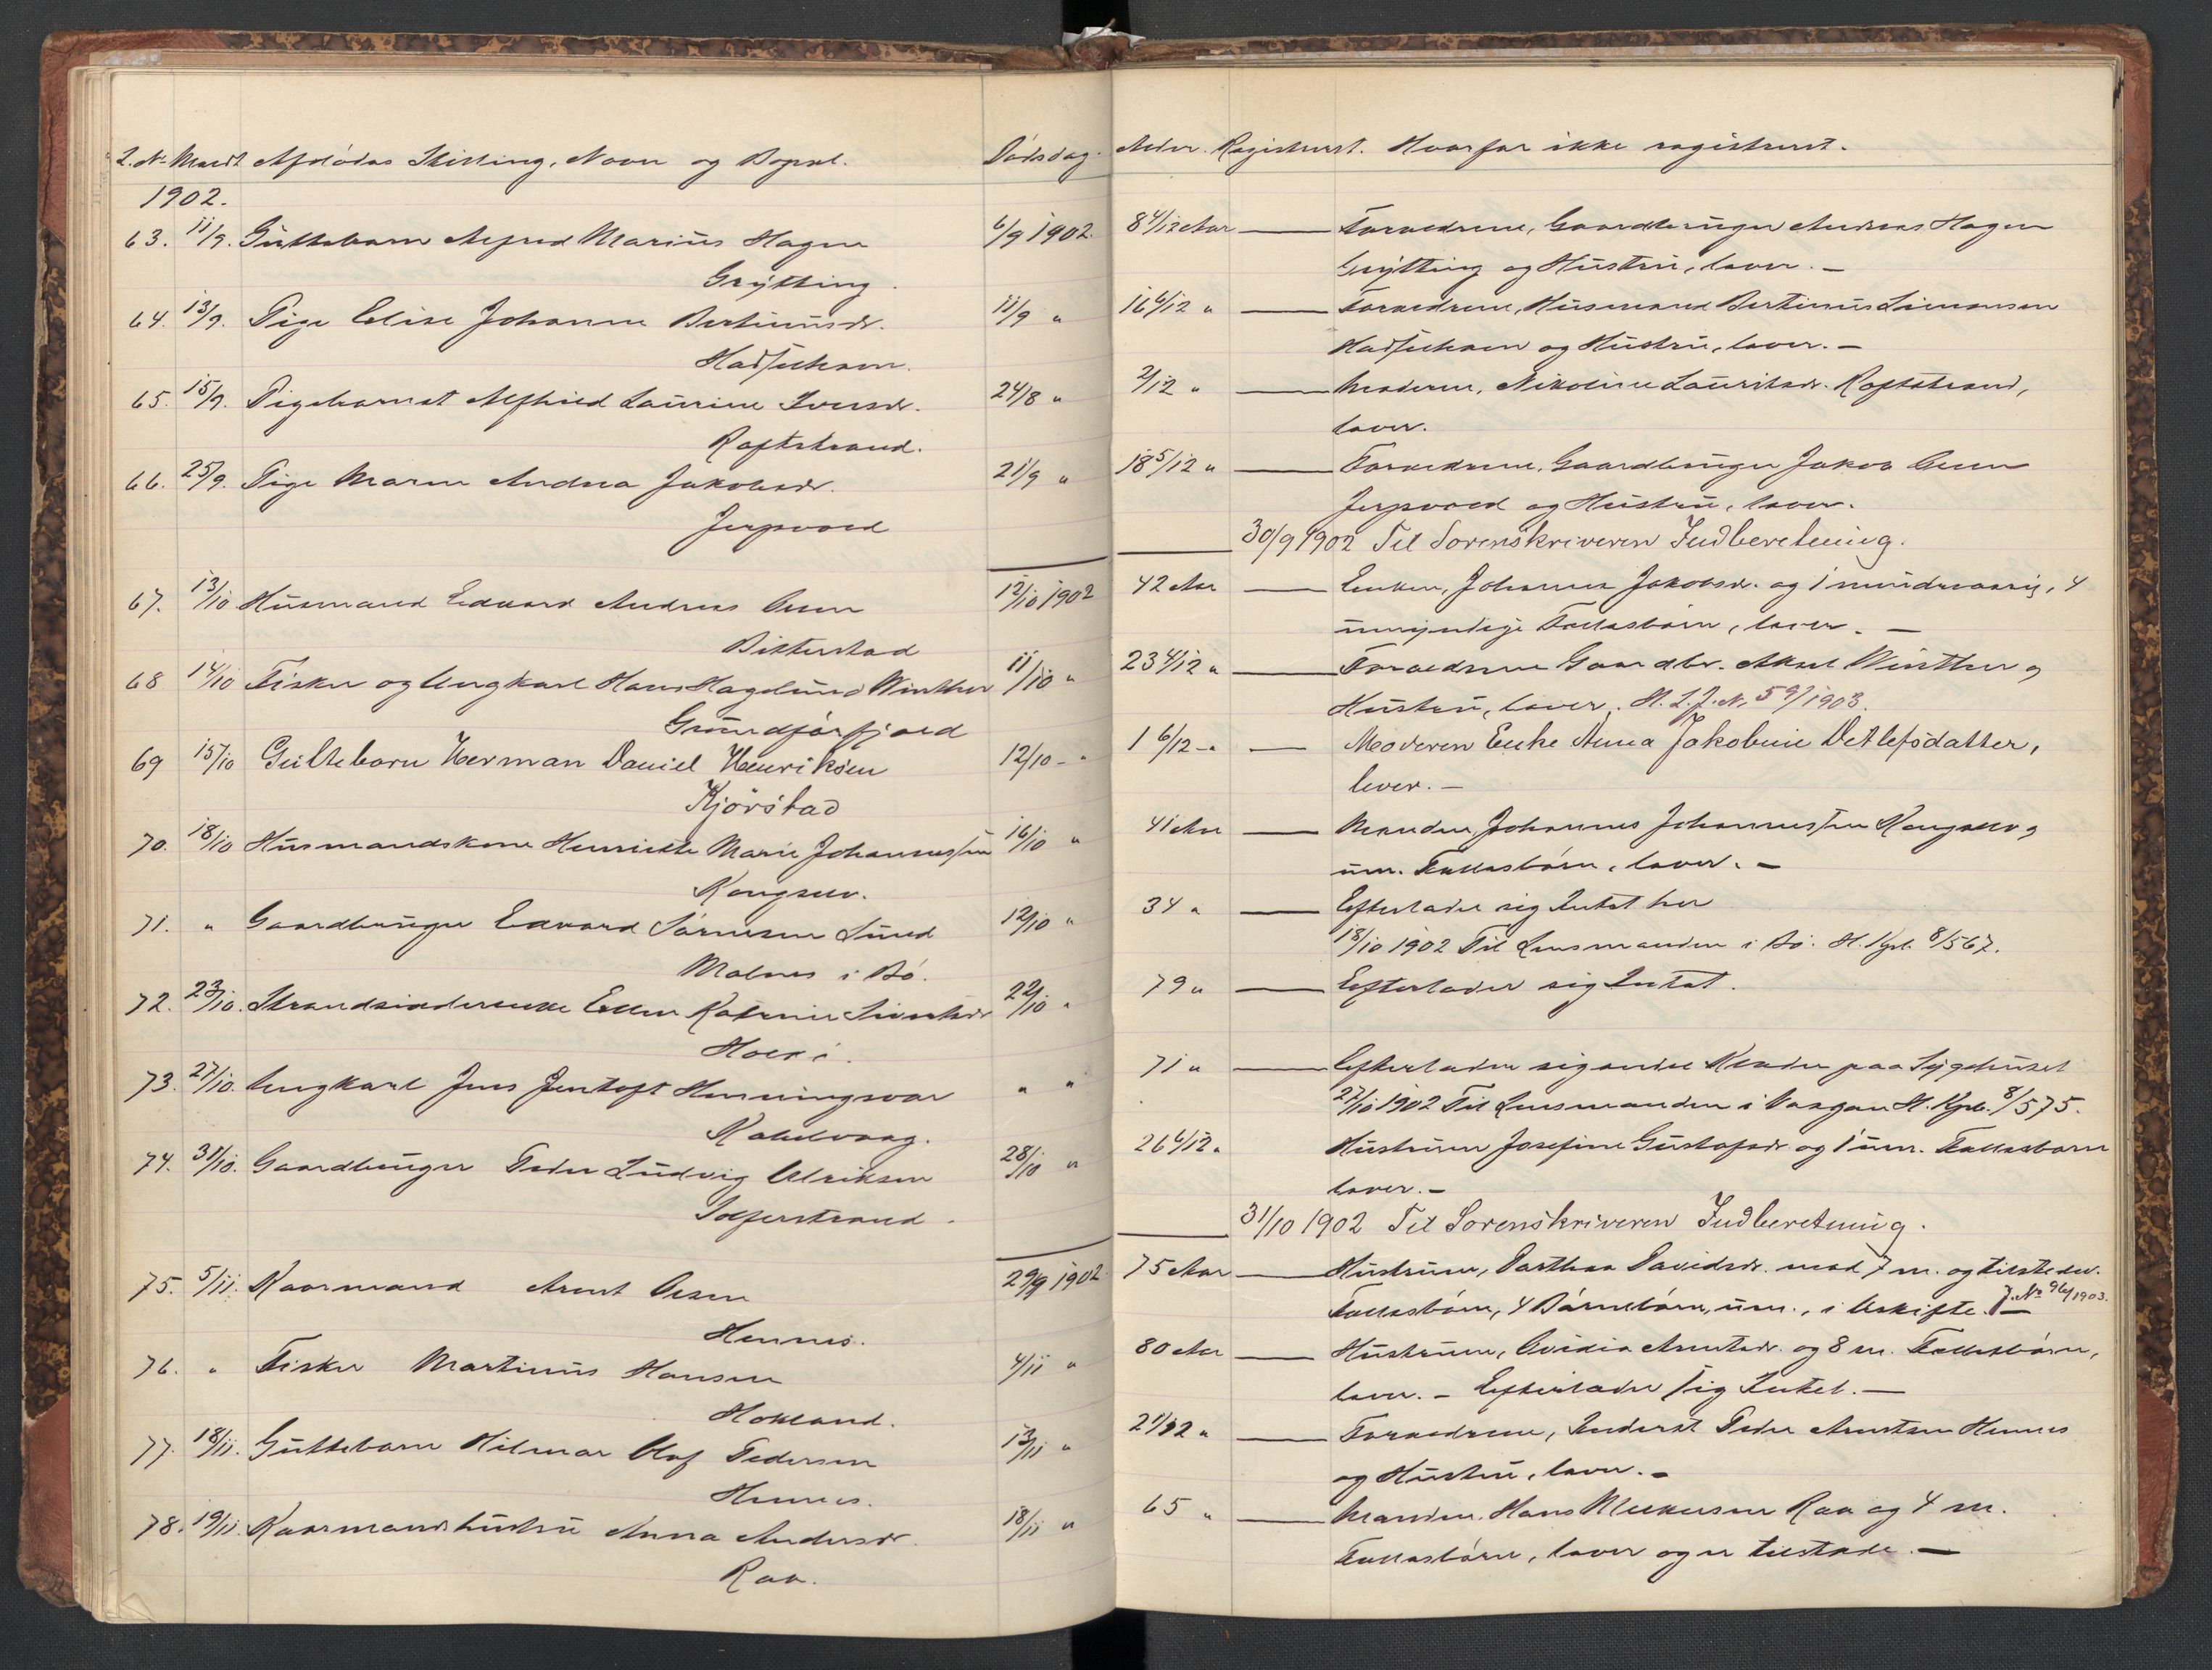 L.No Meldt Afdødes Stilling, Navn og Bopæl. Dødsdag. Alder Registreret. Hvorfor ikke registreret.
1902.
63. 11/9. Guttebarn Alfred Marius Hagen 6/9 1902. 8 4/12 Aar — Forældrene, Gaardbruger Andreas Hagen
Grytting. Grytting og Hustru, lever. —
64. 13/9. Pige Elise Johanne Bertinusdr. 11/9 " 16 6/12 " — Forældrene, Husmand Bertinus Simonsen
Hadselhavn. Hadselhavn og Hustru, lever. —
65. 15/9. Pigebarnet Alfhild Laurine Iversdr. 24/8 " 2/12 " — Moderen, Nikoline Lauritsdr. Raftstrand,
Raftstrand. lever.
66. 25/9. Pige Maren Andrea Jakobsdr. 21/9 " 18 5/12 " — Forældrene, Gaardbruger Jakob Olsen
Jerpvold Jerpvold og Hustru, lever.
30/9 1902 Til Sorenskriveren Indberetning.
67. 13/10 Husmand Edvard Andreas Olsen 12/10 1902 42 Aar — Enken, Johanna Jakobsdr. og 1 mindreaarig, 4
Bitterstad umyndige Fællesbørn, lever. —
68 14/10 Fisker og Ungkarl Hans Hagelund Winther 11/10 " 23 4/12 " — Forældrene Gaardbr. Aksel Winther og
Grundførfjord Hustru, lever. H. L. J. No 59/1903.
69 15/10 Gutteborn Herman Daniel Henriksen 12/10 - " 1 6/12 - " — Moderen Enke Anna Jakobine Detlefsdatter,
Kjørstad lever. —
70. 18/10 Husmandskone Henriette Marie Johannessen 16/10 " 41 Aar — Manden, Johannes Johannessen Kongselv og
Kongselv. um. Fællesbørn, lever. —
71. " Gaardbruger Edvard Sørensen Lund 12/10 " 34 " — Efterlader sig Intet her
Malnes i Bø. 18/10 1902 Til Lensmanden i Bø. H. Kpb. 8/567.
72. 23/10. Strandsidderenke Ellen Katrine Sivertsdr 22/10 " 79 " — Efterlader sig Intet.
73. 27/10. Ungkarl Jens Jentoft Henningsvær " " 71 " — Efterlader sig endel Klæder paa Sygehuset
Kabelvaag. 27/10 1902 Til Lensmanden i Vaagan H. Kpb. 8/575.
74. 31/10. Gaardbruger Peder Ludvig Ulriksen 28/10 " 26 6/12 " Hustruen Josefine Gustafsdr og 1 um. Fællesbarn
lever. —
31/10 1902 Til Sorenskriveren Indberetning.
75. 5/11. Kaarmand Arnt Olsen 29/9 1902. 75 Aar — Hustruen, Parthea Davidsdr. med 7 m. og tilstedev.
Hennes. Fællesbørn, 4 Børnebørn, um., i Uskifte. J. No 96/1903.
76. " Fisker Martinus Hansen 4/11 " 80 Aar — Hustruen, Ovidia Arntsdr. og 8 m. Fællesbørn,
Hokland. lever. — Efterlader sig Intet. —
77. 18/11. Guttebarn Hilmar Olaf Pedersen 13/11 " 21/12 " — Forældrene, Inderst Peder Arntsen Hennes
Hennes. og Hustru, lever. —
78. 19/11. Kaarmandshustru Anna Andersdr. 18/11 " 65 " — Manden, Hans Mekelsen Raa og 4 m.
Raa. Fællesbørn, lever og er tilstede. —